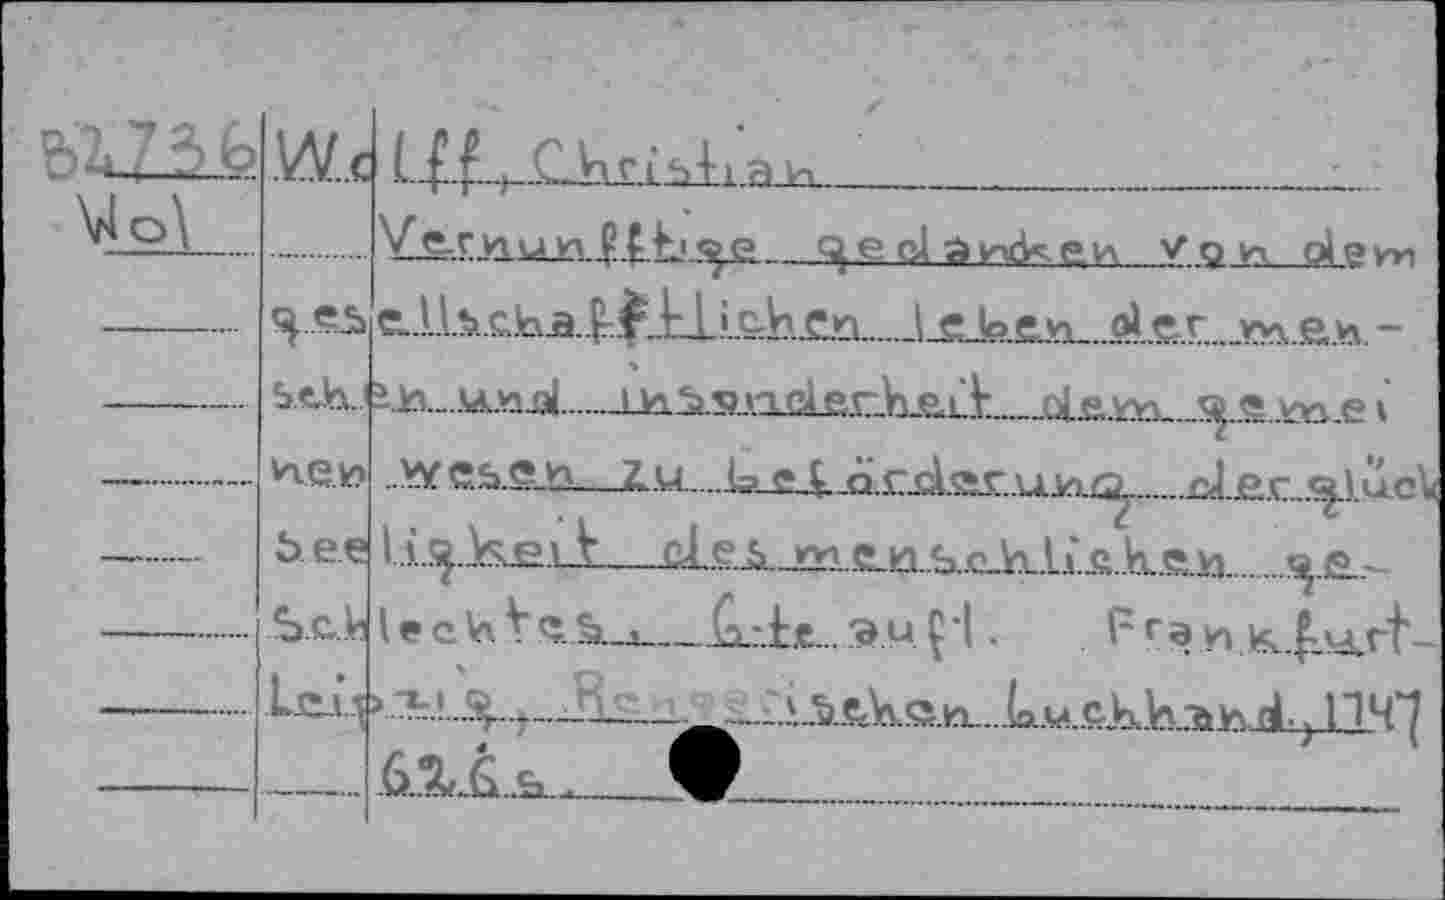 B2736 Wolff, Christian
Wol Vernunfftige gedancken von dem
gesellschafftlichen leben der men-
schen und insonderheit dem gemei
nen wesen zu beförderung der glück
seeligkeit des menschlichen ge-
schlechtes. 6-te aufl. Frankfurt-
Leipzig, Rengerischen buchhand., 1747
626 s.